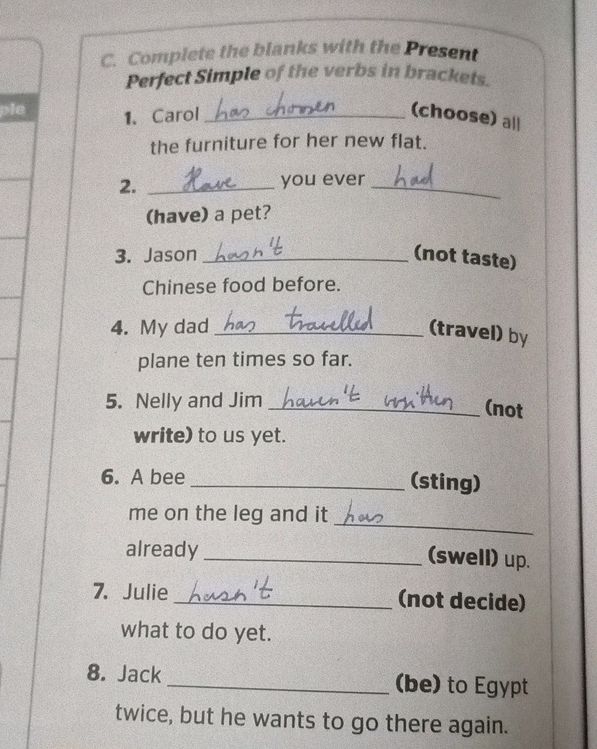 ple
C. Complete the blanks with the Present
Perfect Simple of the verbs in brackets.
1. Carol has choosen (choose) all
the furniture for her new flat.
2. Have you ever had
(have) a pet?
3. Jason hasn't (not taste)
Chinese food before.
4. My dad has travelled (travel) by
plane ten times so far.
5. Nelly and Jim haven't written (not
write) to us yet.
6. A bee (sting)
me on the leg and it has
already (swell) up.
7. Julie hasn't (not decide)
what to do yet.
8. Jack (be) to Egypt
twice, but he wants to go there again.